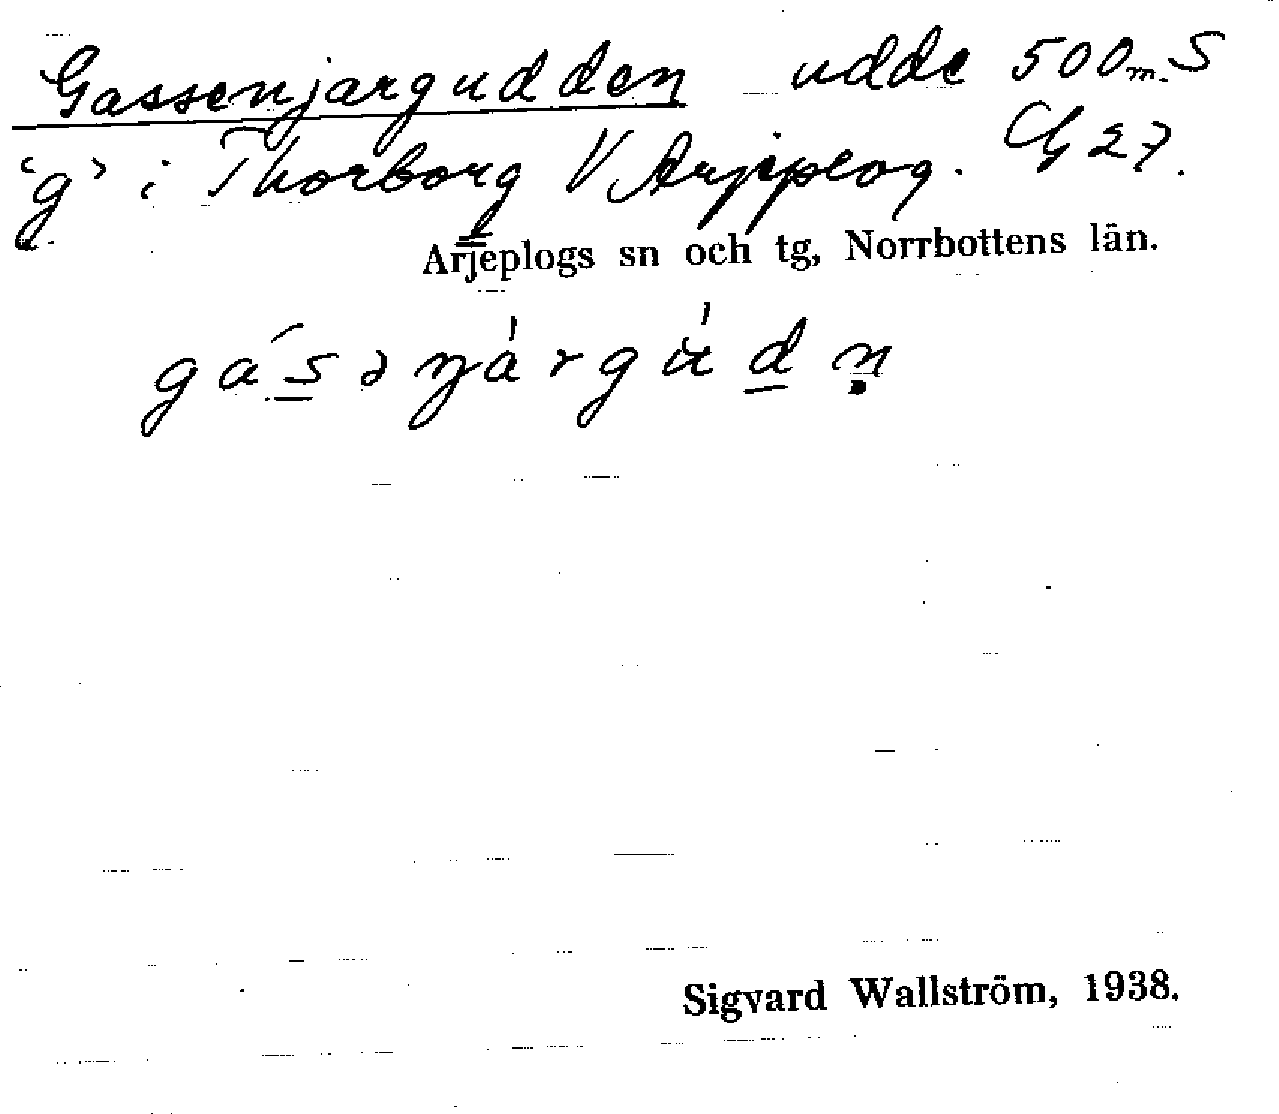 Gassenjargudden udde 500 m. S
'g' i Thorborg V Arjeplog. G 27.
Arjeplogs sn och tg, Norrbottens län.
gásəŋárgu̇dn̥
Sigvard Wallström, 1938.